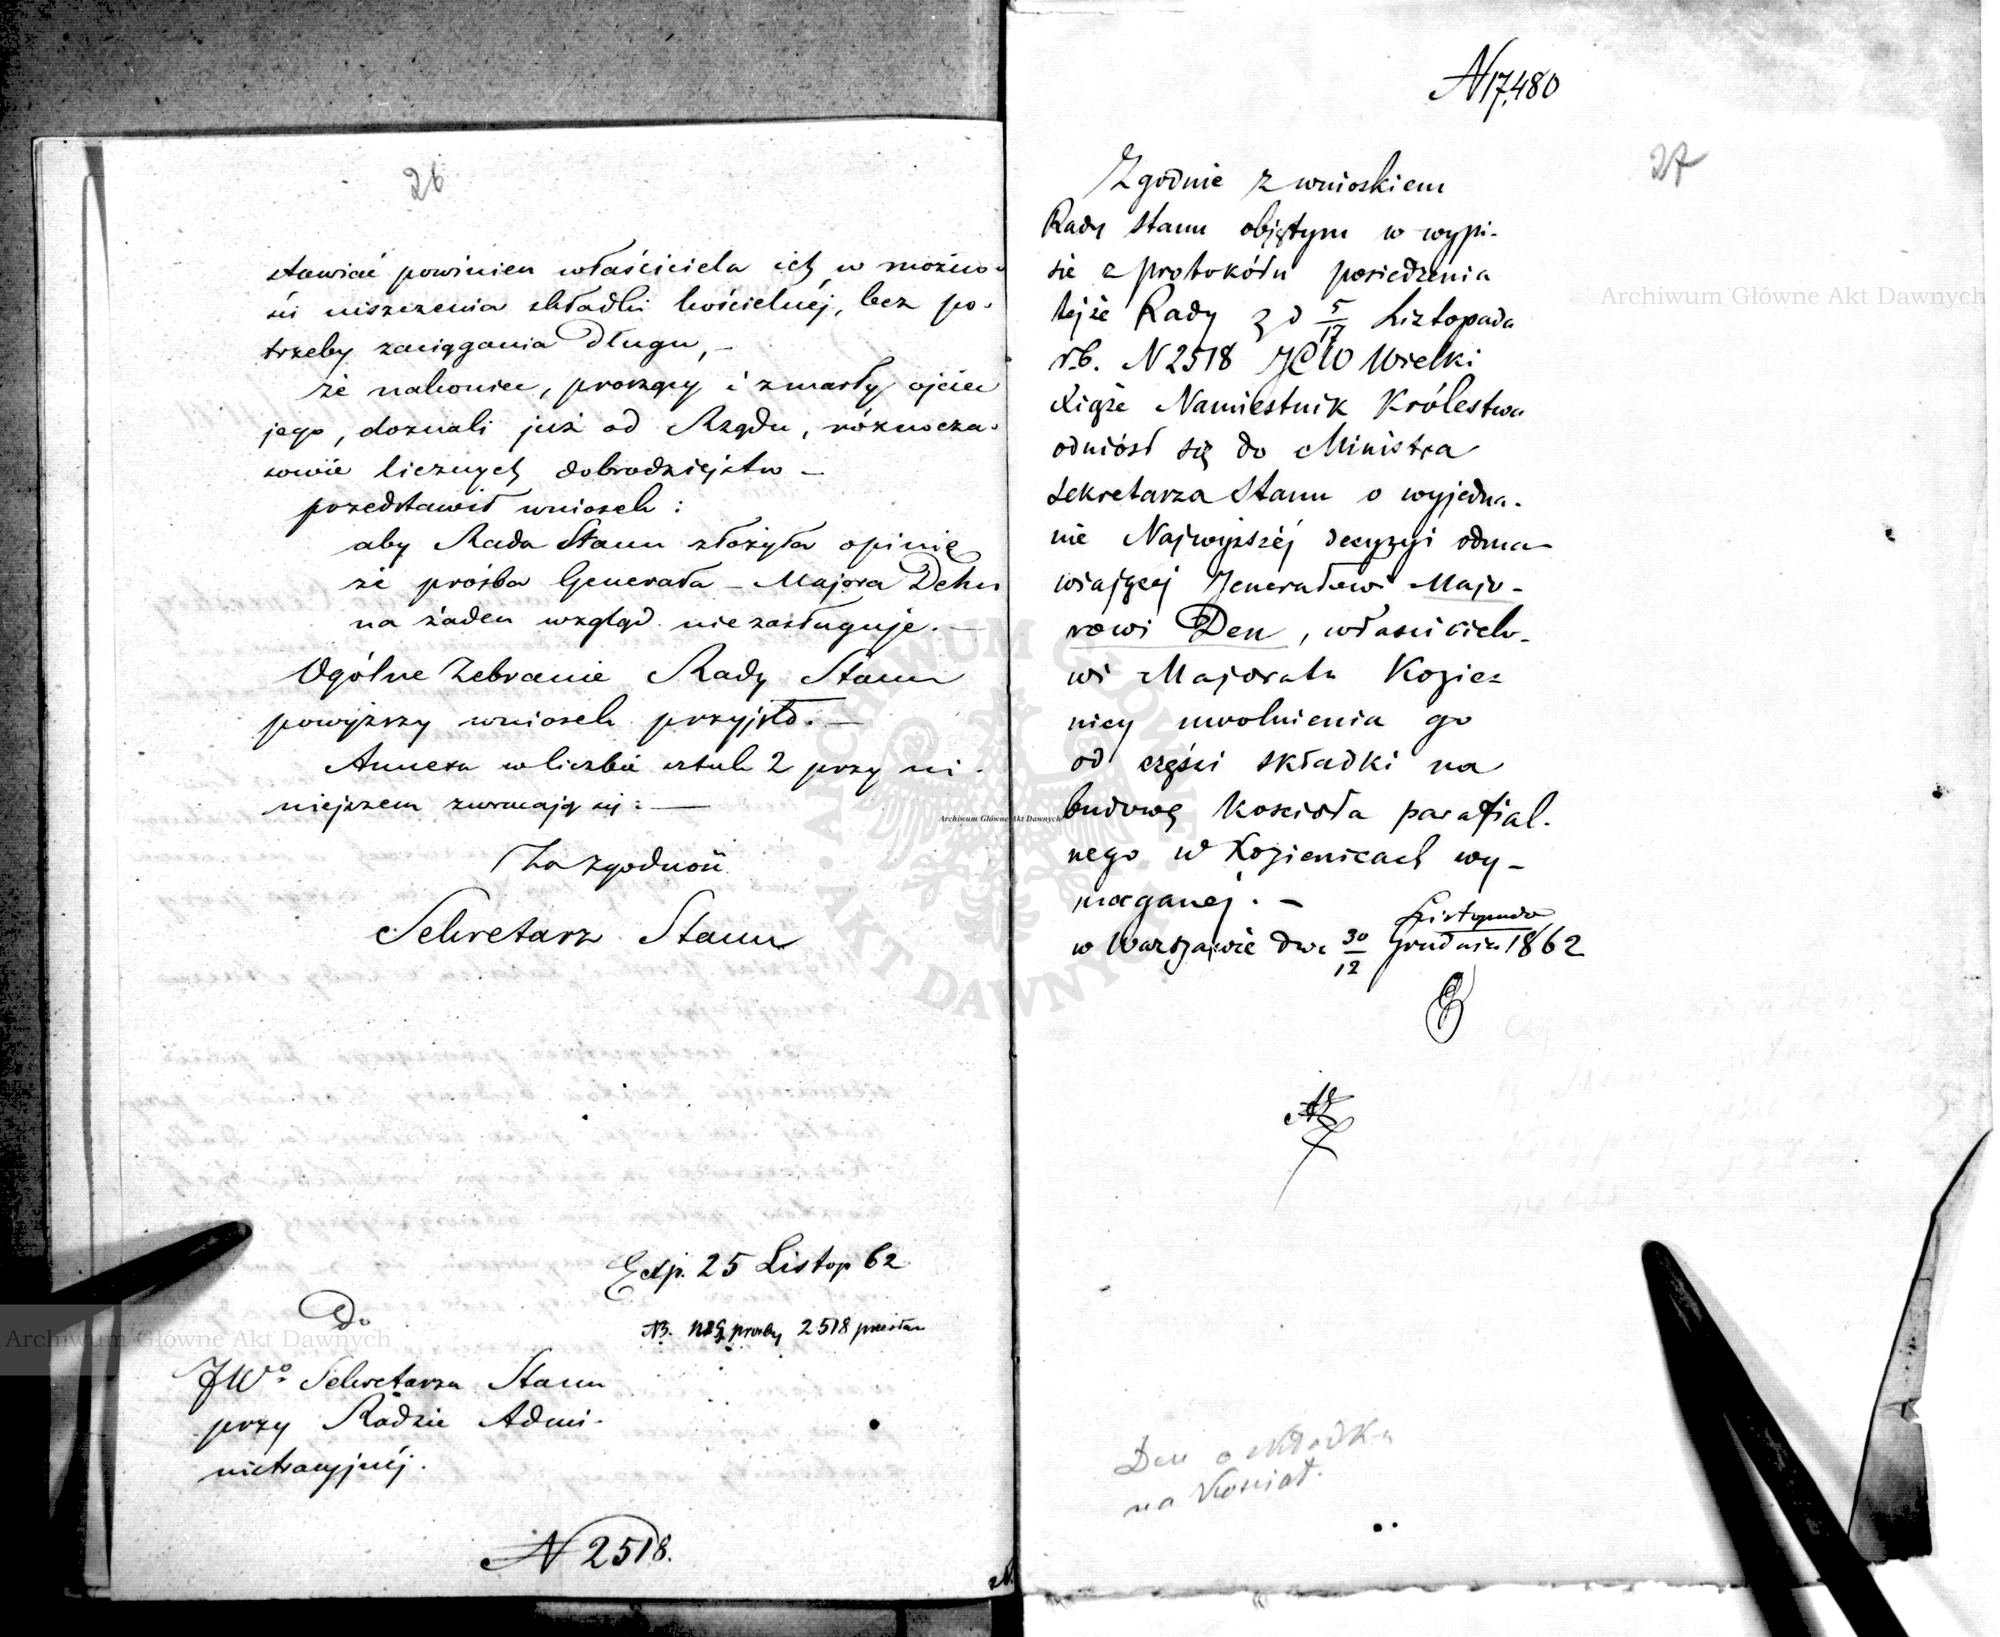 26
stawiać powinien właściciela ich w możno-
ści uiszczenia składki kościelnéj, bez po-
trzeby zaciągania Długu, –
że nakoniec, proszący i zmarły ojciec
jego, doznali już od Rządu, różnocza-
sowie licznych dobrodziejstw –
przedstawił wniosek :
aby Rada Stanu złożyła opinię
że prośba Generała – Majora Dehn
na żaden wzgląd nie zasługuje. –
Ogólne Zebranie Rady Stanu
powyższy wniosek przyjęło. –
Annexa w liczbie sztuk 2 przy ni-
niejszem zwracają się. –
Za zgodność
Sekretarz Stanu
Exp. 25 Listop 62
NB. prośby 2518
Do
JWo Sekretarza Stanu
przy Radzie Admi-
nistracyjnéj.
N 2518.
N 17,480
27
Zgodnie z wnioskiem
Rady Stanu objętym w wypi-
sie z protokółu posiedzenia
tejże Rady z d 5/17 Listopada
r.b. N 2518 JCW Wielki
Xiąże Namiestnik Królestwa
odniósł się do Ministra
Sekretarza Stanu o wyjedna-
nie Najwyższéj decyzyi odma-
wiającej Jenerałowi Majo-
rowi Den, właścicielo-
wi Majoratu Kozie-
nicy uwolnienia go
od części składki na
budowę Kościoła parafial-
nego w Kozienicach wy-
maganej. –
w Warszawie dnia 30/12 Listopada/Grudnia 1862
Den o składkę
na Kościoł.
Archiwum Główne Akt Dawnych
Archiwum Główne Akt Dawnych
Archiwum Główne Akt Dawnych
ARCHIWUM GŁÓWNE · AKT DAWNYCH ·